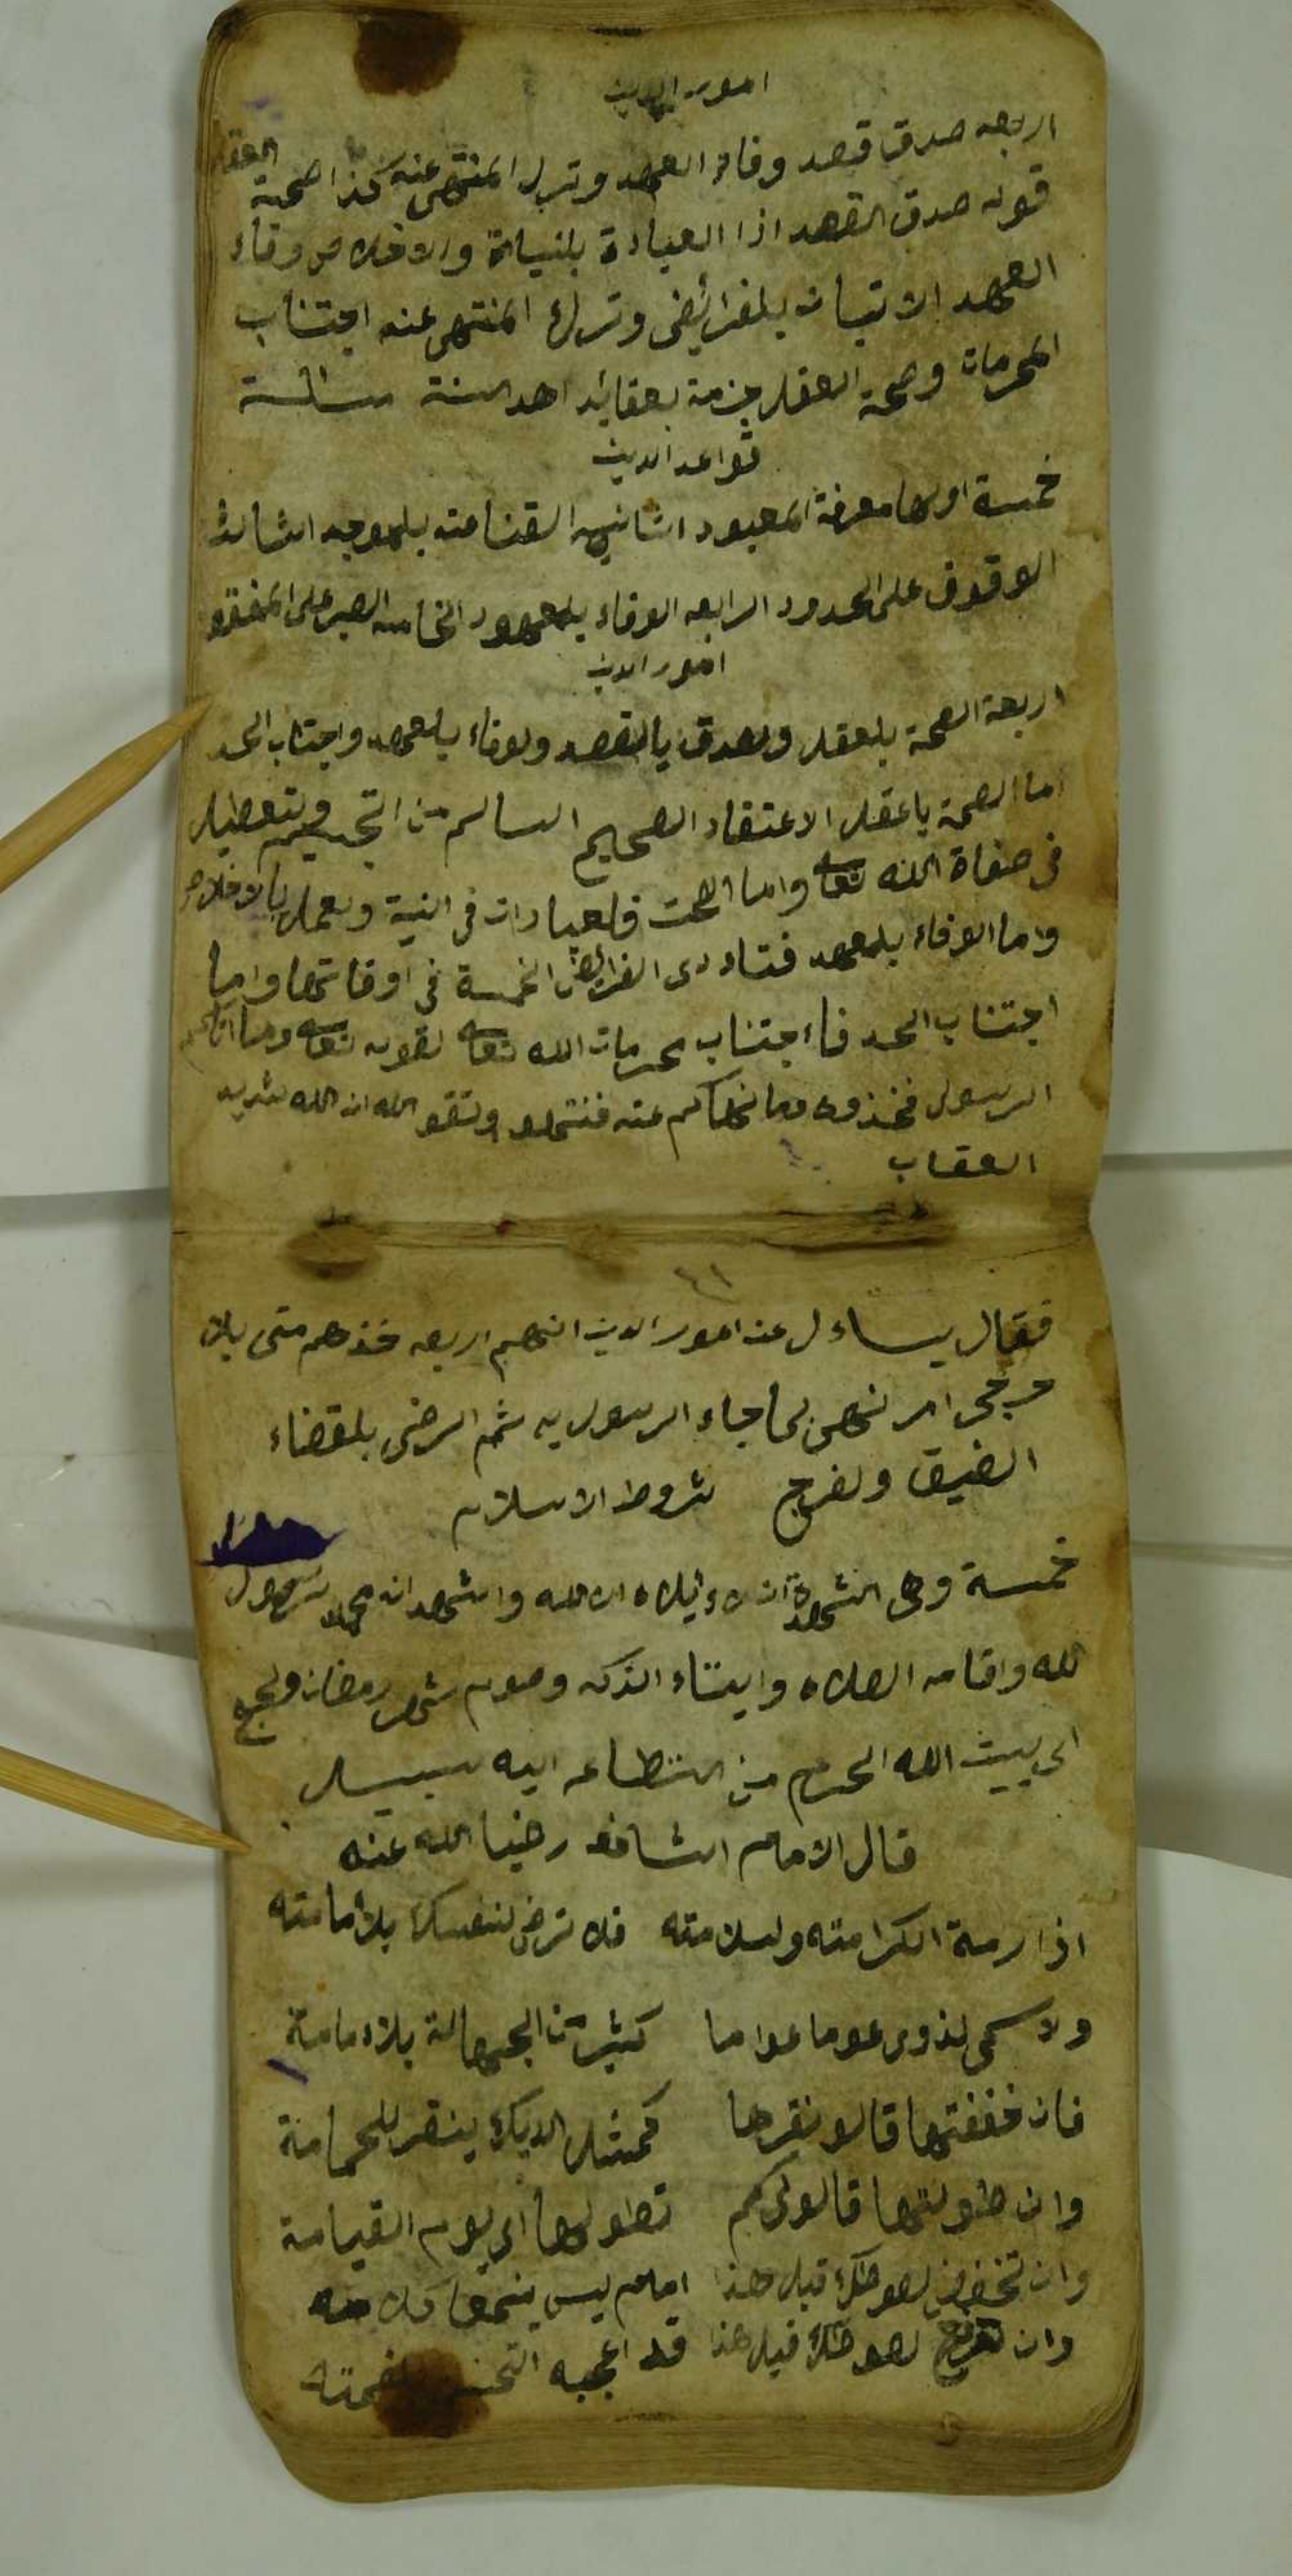 امور الدين
اربعه صدق قصد وفاء العهد وترك المنتهى عنه كذا صحة العقد
قوله صدق القصد اذا العبادة بلنيات والاخلاص وفاء
العهد الاتيان بلفرائض وترك المنتهى عنه اجتناب
المحرمات وصحة العقد جزمة بعقائد اهل السنة
قواعد الدين
خمسة اولها معرفة المعبود الثانيه القنامته بلموجد الثالث
الوقوف على الحدود الرابعه الوفاء بلعهود الخامسه الصبر على المفقود
امور الدين
اربعة الصحة بلعقد ولصدق بالقصد ولوفاء بلعهد واجتناب الحد
اما الصحة باعقد الاعتقاد الصحيح السالم من التجسيم ولتعطيل
في صفاة الله تعالى واما الصحت فلعبادات في النية ولعمل بالاخلاص
واما الوفاء بلعهد فتاددى الفرايض الخمسة في اوقاتها واما
اجتناب الحد فا اجتناب محرمات الله تعالى لقوله تعالى وما اتاكم
الرسول فخذوه وما نهاكم عنه فنتهو وتقو الله ان الله شديد
العقاب
٤١
فقال يساءل عند امور الدين انهم اربعه خذهم متى بلا
حرجي امر نهي لما جاء الرسول به ثم الرضى بلقضاء
الضيق ولفرج شروط الاسلام
خمسة وهي الشهدة ان لاء ايلاه الا الله واشهد ان محمد رسول
الله واقامه الصلاه وايتاء الذكه وصوم شهر رمضان ولحج
الى بيت الله الحرم من استطاعه اليه سبيل
قال الامام الشافعي رضيا الله عنه
اذا رمة الكرامته ولسلامته فلا ترض لنفسك بلامامته
ولا سمى لذوى عوما عواما كثير من الجهالة بلاء مامة
فان خففتها قالو نقرها كمثل الديك ينقر للحمامنة
وان طولتها قالو لكم تطولها الى يوم القيامة
وان تخفض لصوتك قبل هذا امام ليس يفهمنا كلامه
وان لصوتك قبل هذا قد اعجبه بنغمته